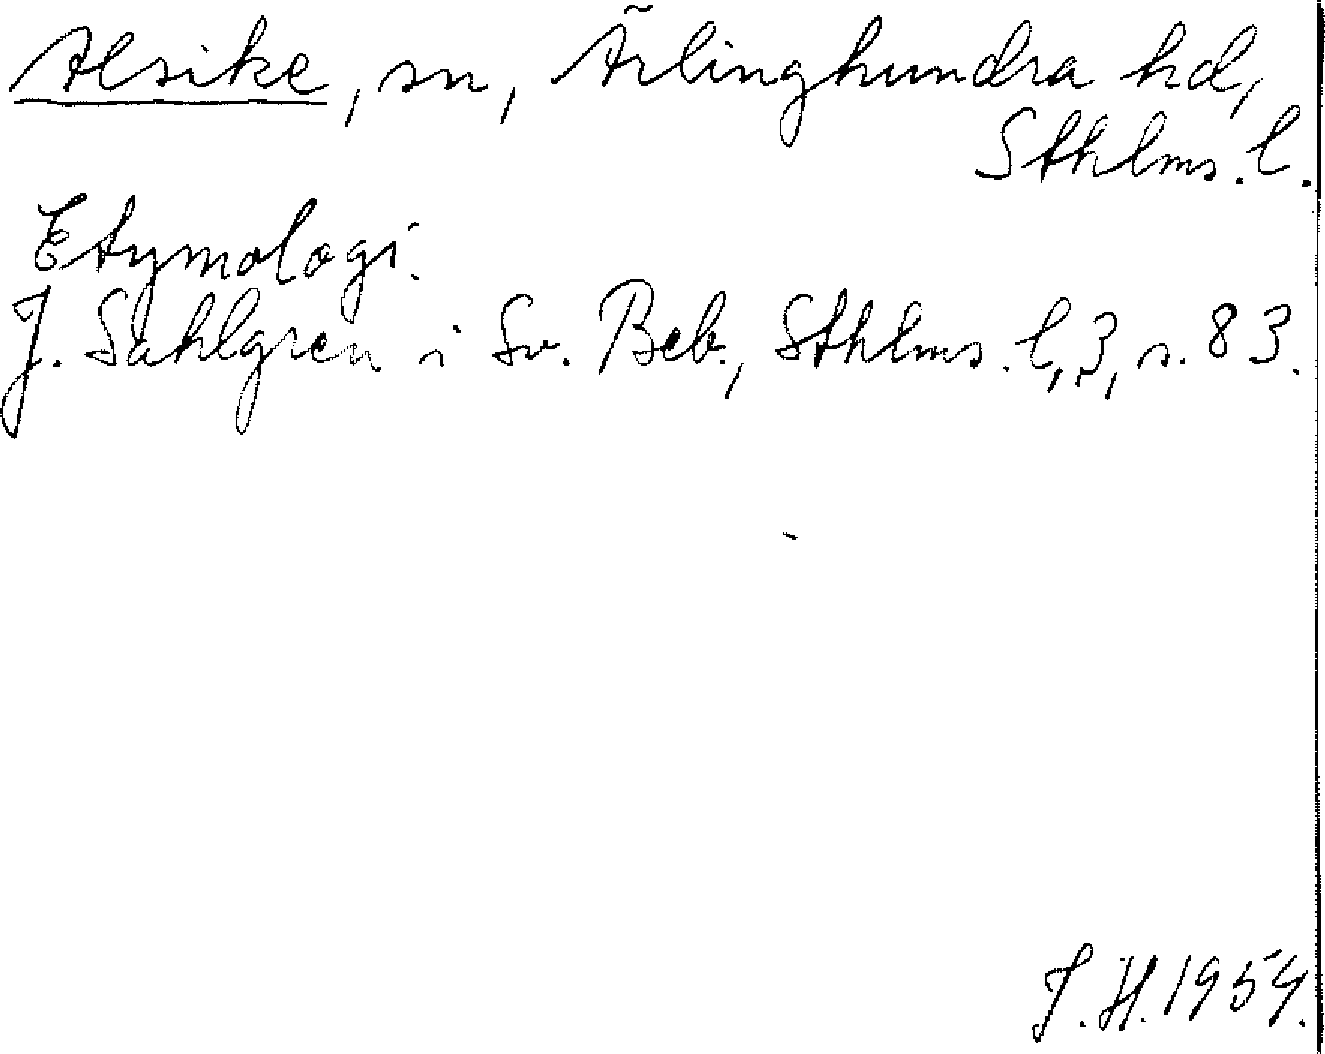 Alsike, sn, Ärlinghundra hd,
Sthlms. l.
Etymologi.
J. Sahlgren i Sv. Beb., Sthlms. l, 3, s. 83.
J. H. 1954.